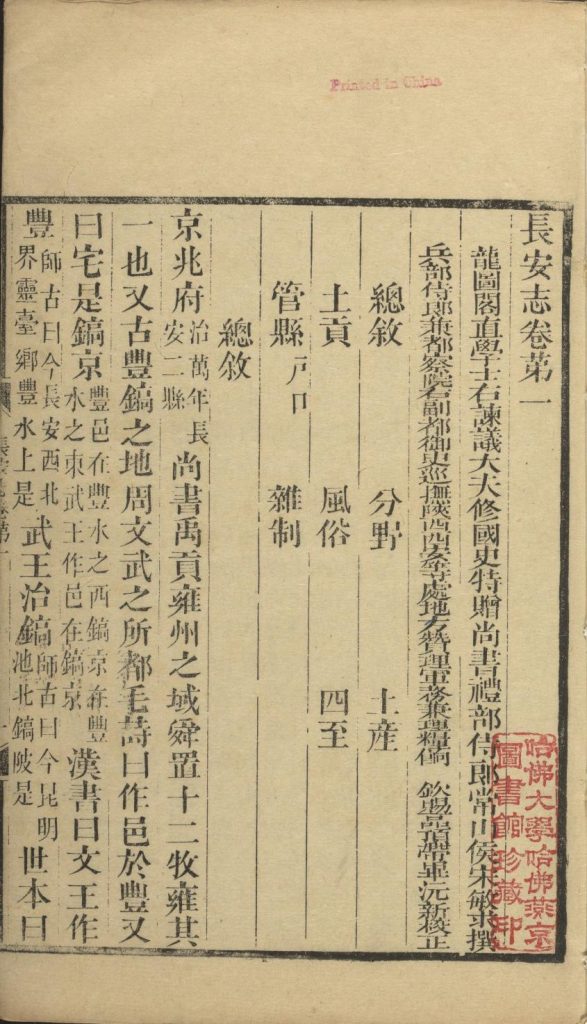 Printed in China
長安志卷第一
龍圖閣直學士右諫議大夫修國史特贈尚書禮部侍郎常山侯宋敏求撰
兵部侍郎兼都察院右副都御史巡撫陝西西安等處地方贊理軍務兼理糧餉 欽賜品頂帶畢沅新校正
總敘 分野 土產
土貢 風俗 四至
管縣戶口 雜制
總敘
京兆府治萬年長安二縣尚書禹貢雍州之域舜置十二牧雍其
一也又古豐鎬之地周文武之所都毛詩曰作邑於豐又
曰宅是鎬京豐邑在豐水之西鎬京在豐水之東武王作邑在鎬京漢書曰文王作
豐師古曰今長安西北界靈臺鄉豐水上是武王治鎬師古曰今昆明池北鎬陂是世本曰
哈佛大學哈佛燕京
圖書館珍藏印